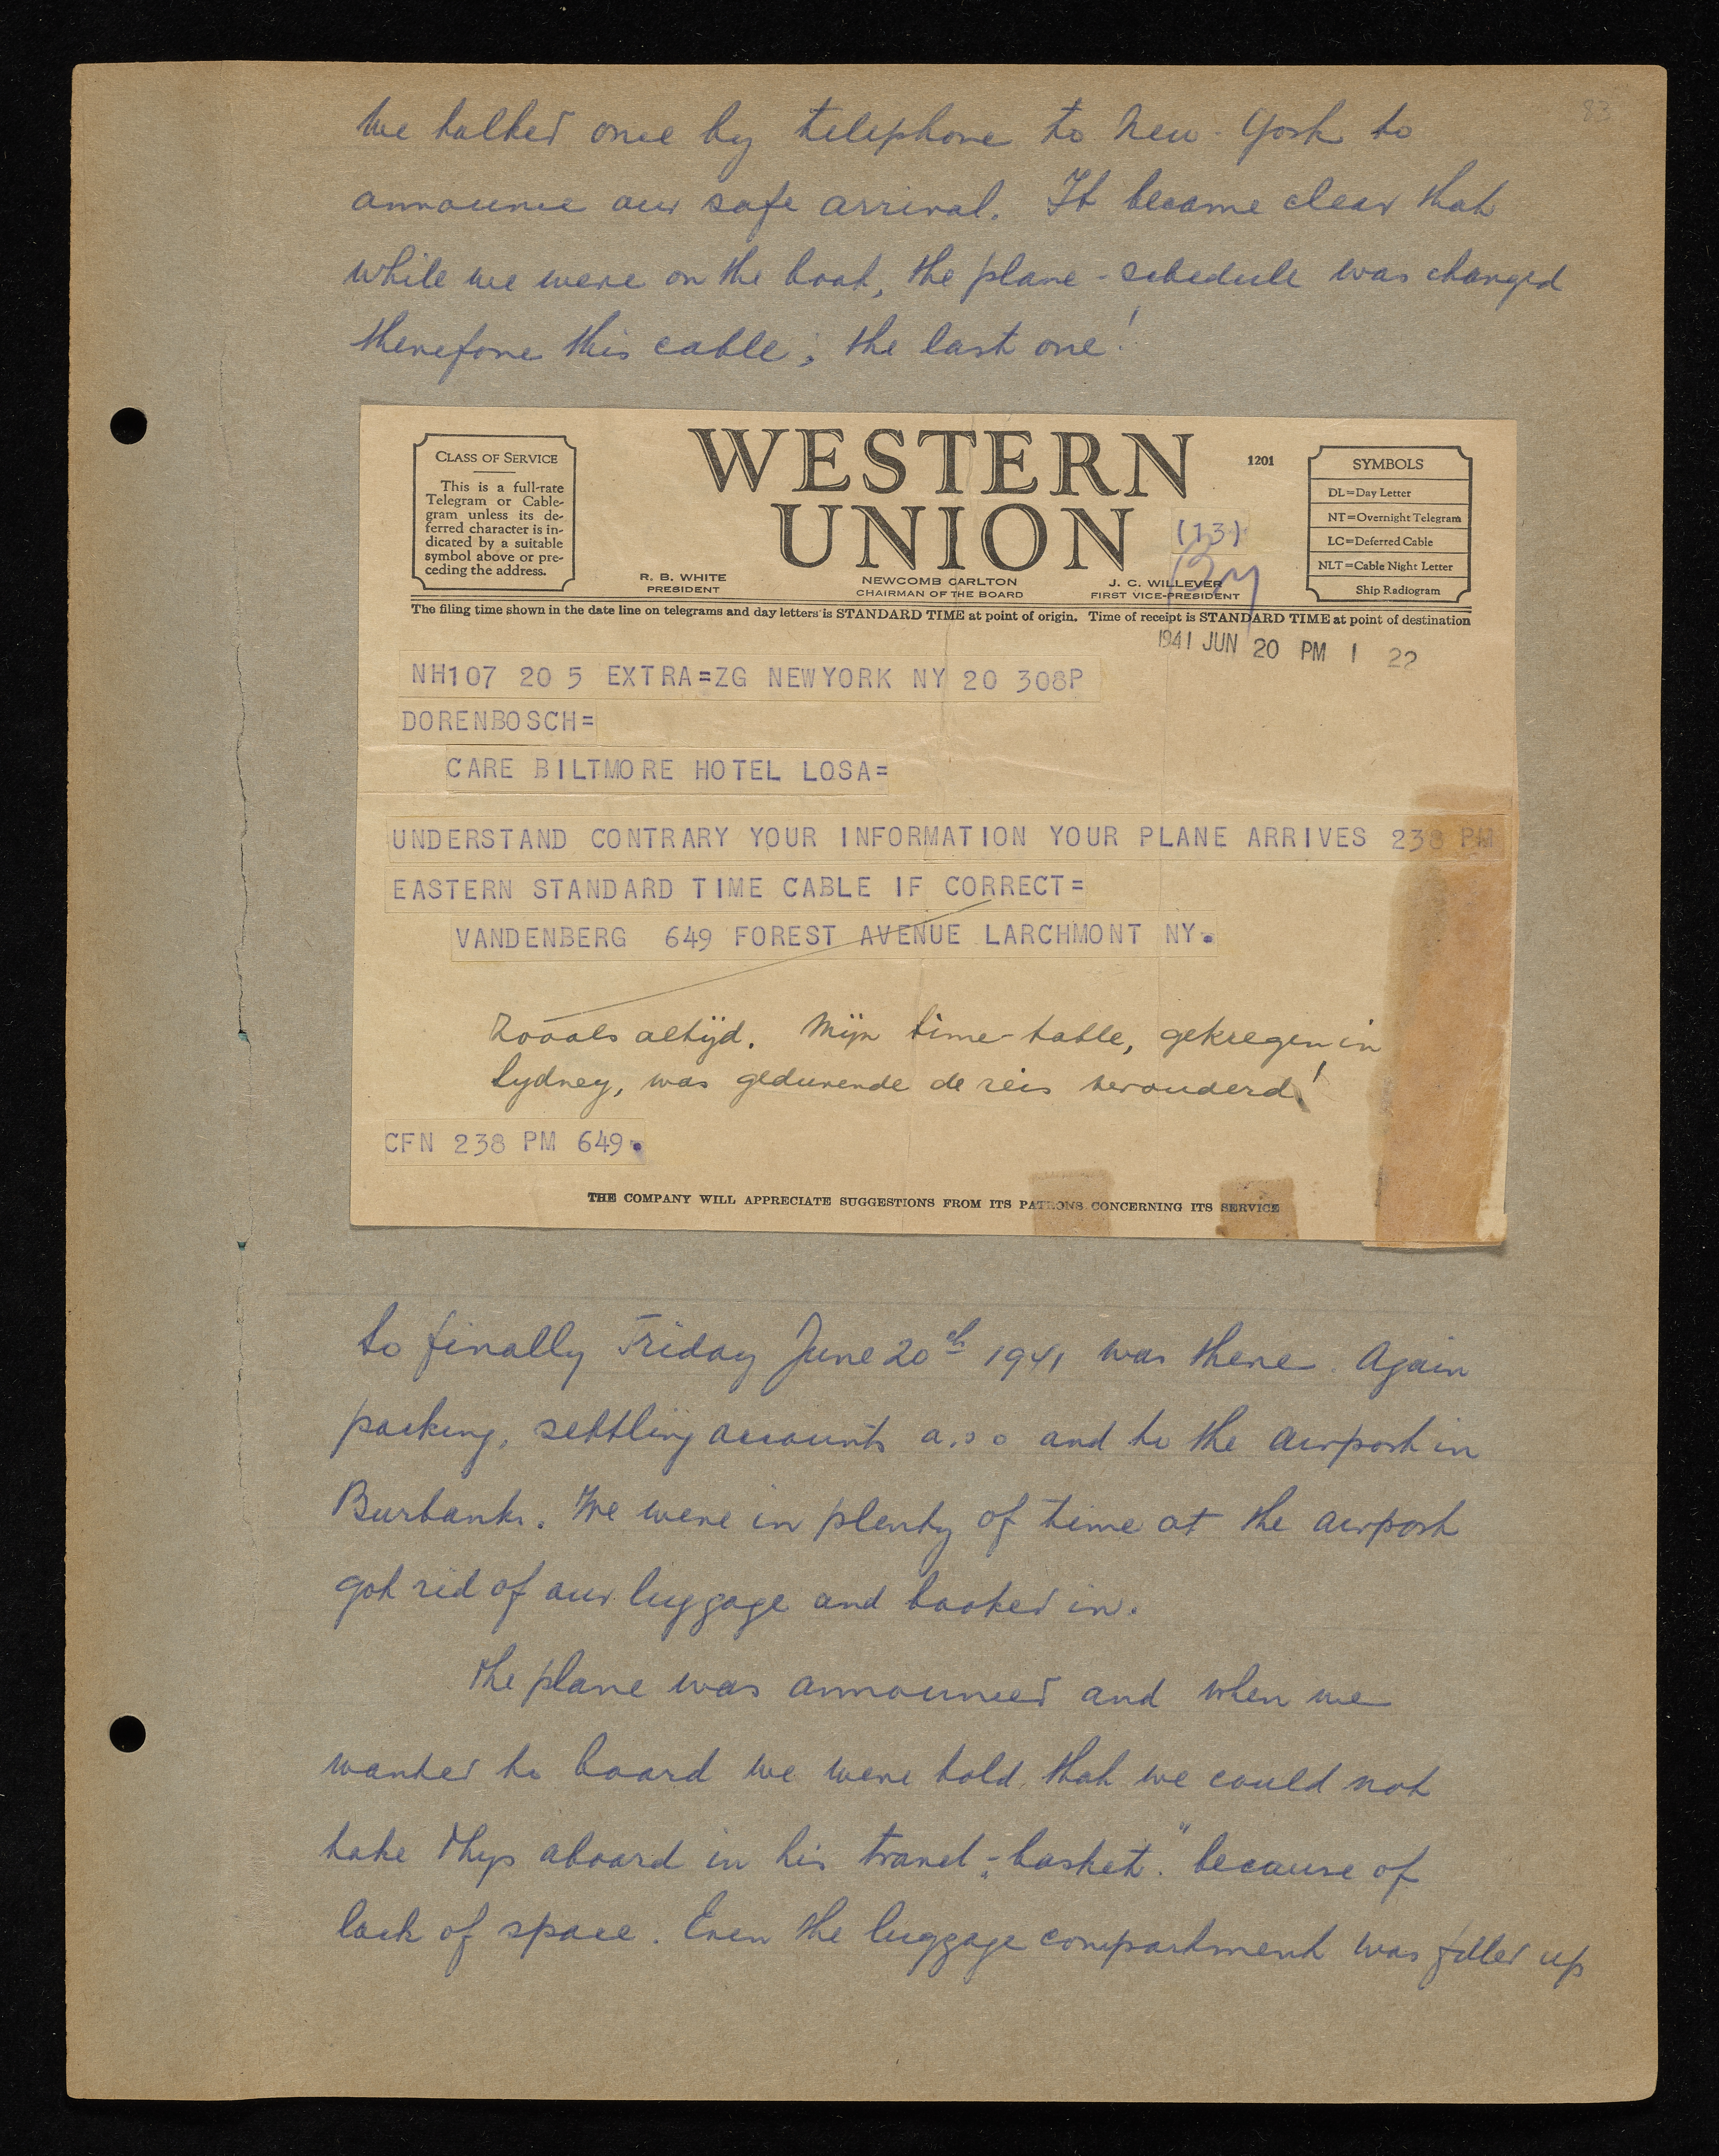 83
We talked once by telephone to New-York to
announce our safe arrival. It became clear that
while we were on the boat, the plane-schedule was changed
therefore this cable, the last one!
CLASS OF SERVICE
This is a full-rate
Telegram or Cable-
gram unless its de-
ferred character is in-
dicated by a suitable
symbol above or pre-
ceding the address.
WESTERN
UNION
1201
(13)
R. B. WHITE
PRESIDENT
NEWCOMB CARLTON
CHAIRMAN OF THE BOARD
J. C. WILLEVER
FIRST VICE-PRESIDENT
SYMBOLS
DL=Day Letter
NT=Overnight Telegram
LC=Deferred Cable
NLT=Cable Night Letter
Ship Radiogram
The filing time shown in the date line on telegrams and day letters is STANDARD TIME at point of origin. Time of receipt is STANDARD TIME at point of destination
1941 JUN 20 PM 1 22
NH107 20 5 EXTRA=ZG NEWYORK NY 20 308P
DORENBOSCH=
CARE BILTMORE HOTEL LOSA=
UNDERSTAND CONTRARY YOUR INFORMATION YOUR PLANE ARRIVES 238 PM
EASTERN STANDARD TIME CABLE IF CORRECT=
VANDENBERG 649 FOREST AVENUE LARCHMONT NY.
Zooals altijd. Mijn time-table, gekregen in
Sydney, was gedurende de reis verouderd!
CFN 238 PM 649.
THE COMPANY WILL APPRECIATE SUGGESTIONS FROM ITS PATRONS CONCERNING ITS SERVICE
So finally Friday June 20th 1941 was there. Again
packing, settling accounts a.s o and to the airport in
Burbank. We were in plenty of time at the airport
got rid of our luggage and booked in.
The plane was announced and when we
wanted to board we were told, that we could not
take Thys aboard in his travel-„basket" because of
lack of space. Even the luggage compartment was filled up